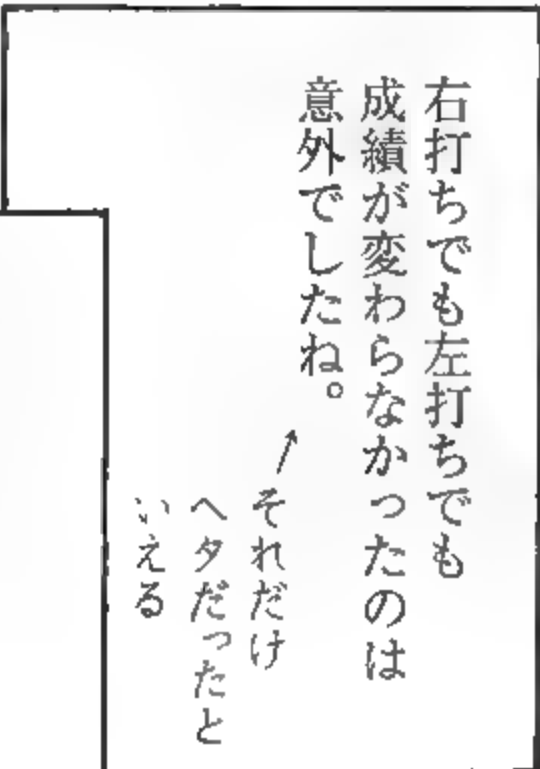 右打ちでも左打ちでも
成績が変わらなかったのは
意外でしたね。
それだけ
ヘタだったと
いえる